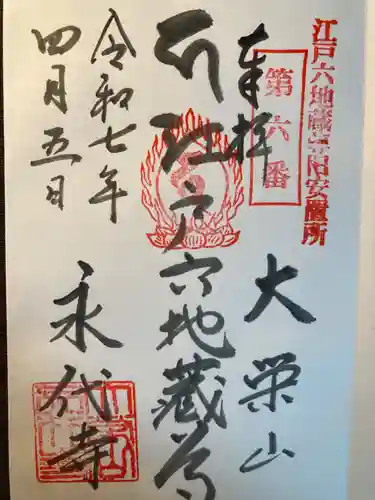 江戸六地蔵安置所
第六番
奉拝
大栄山
江戸六地蔵尊
令和七年
四月五日
永代寺